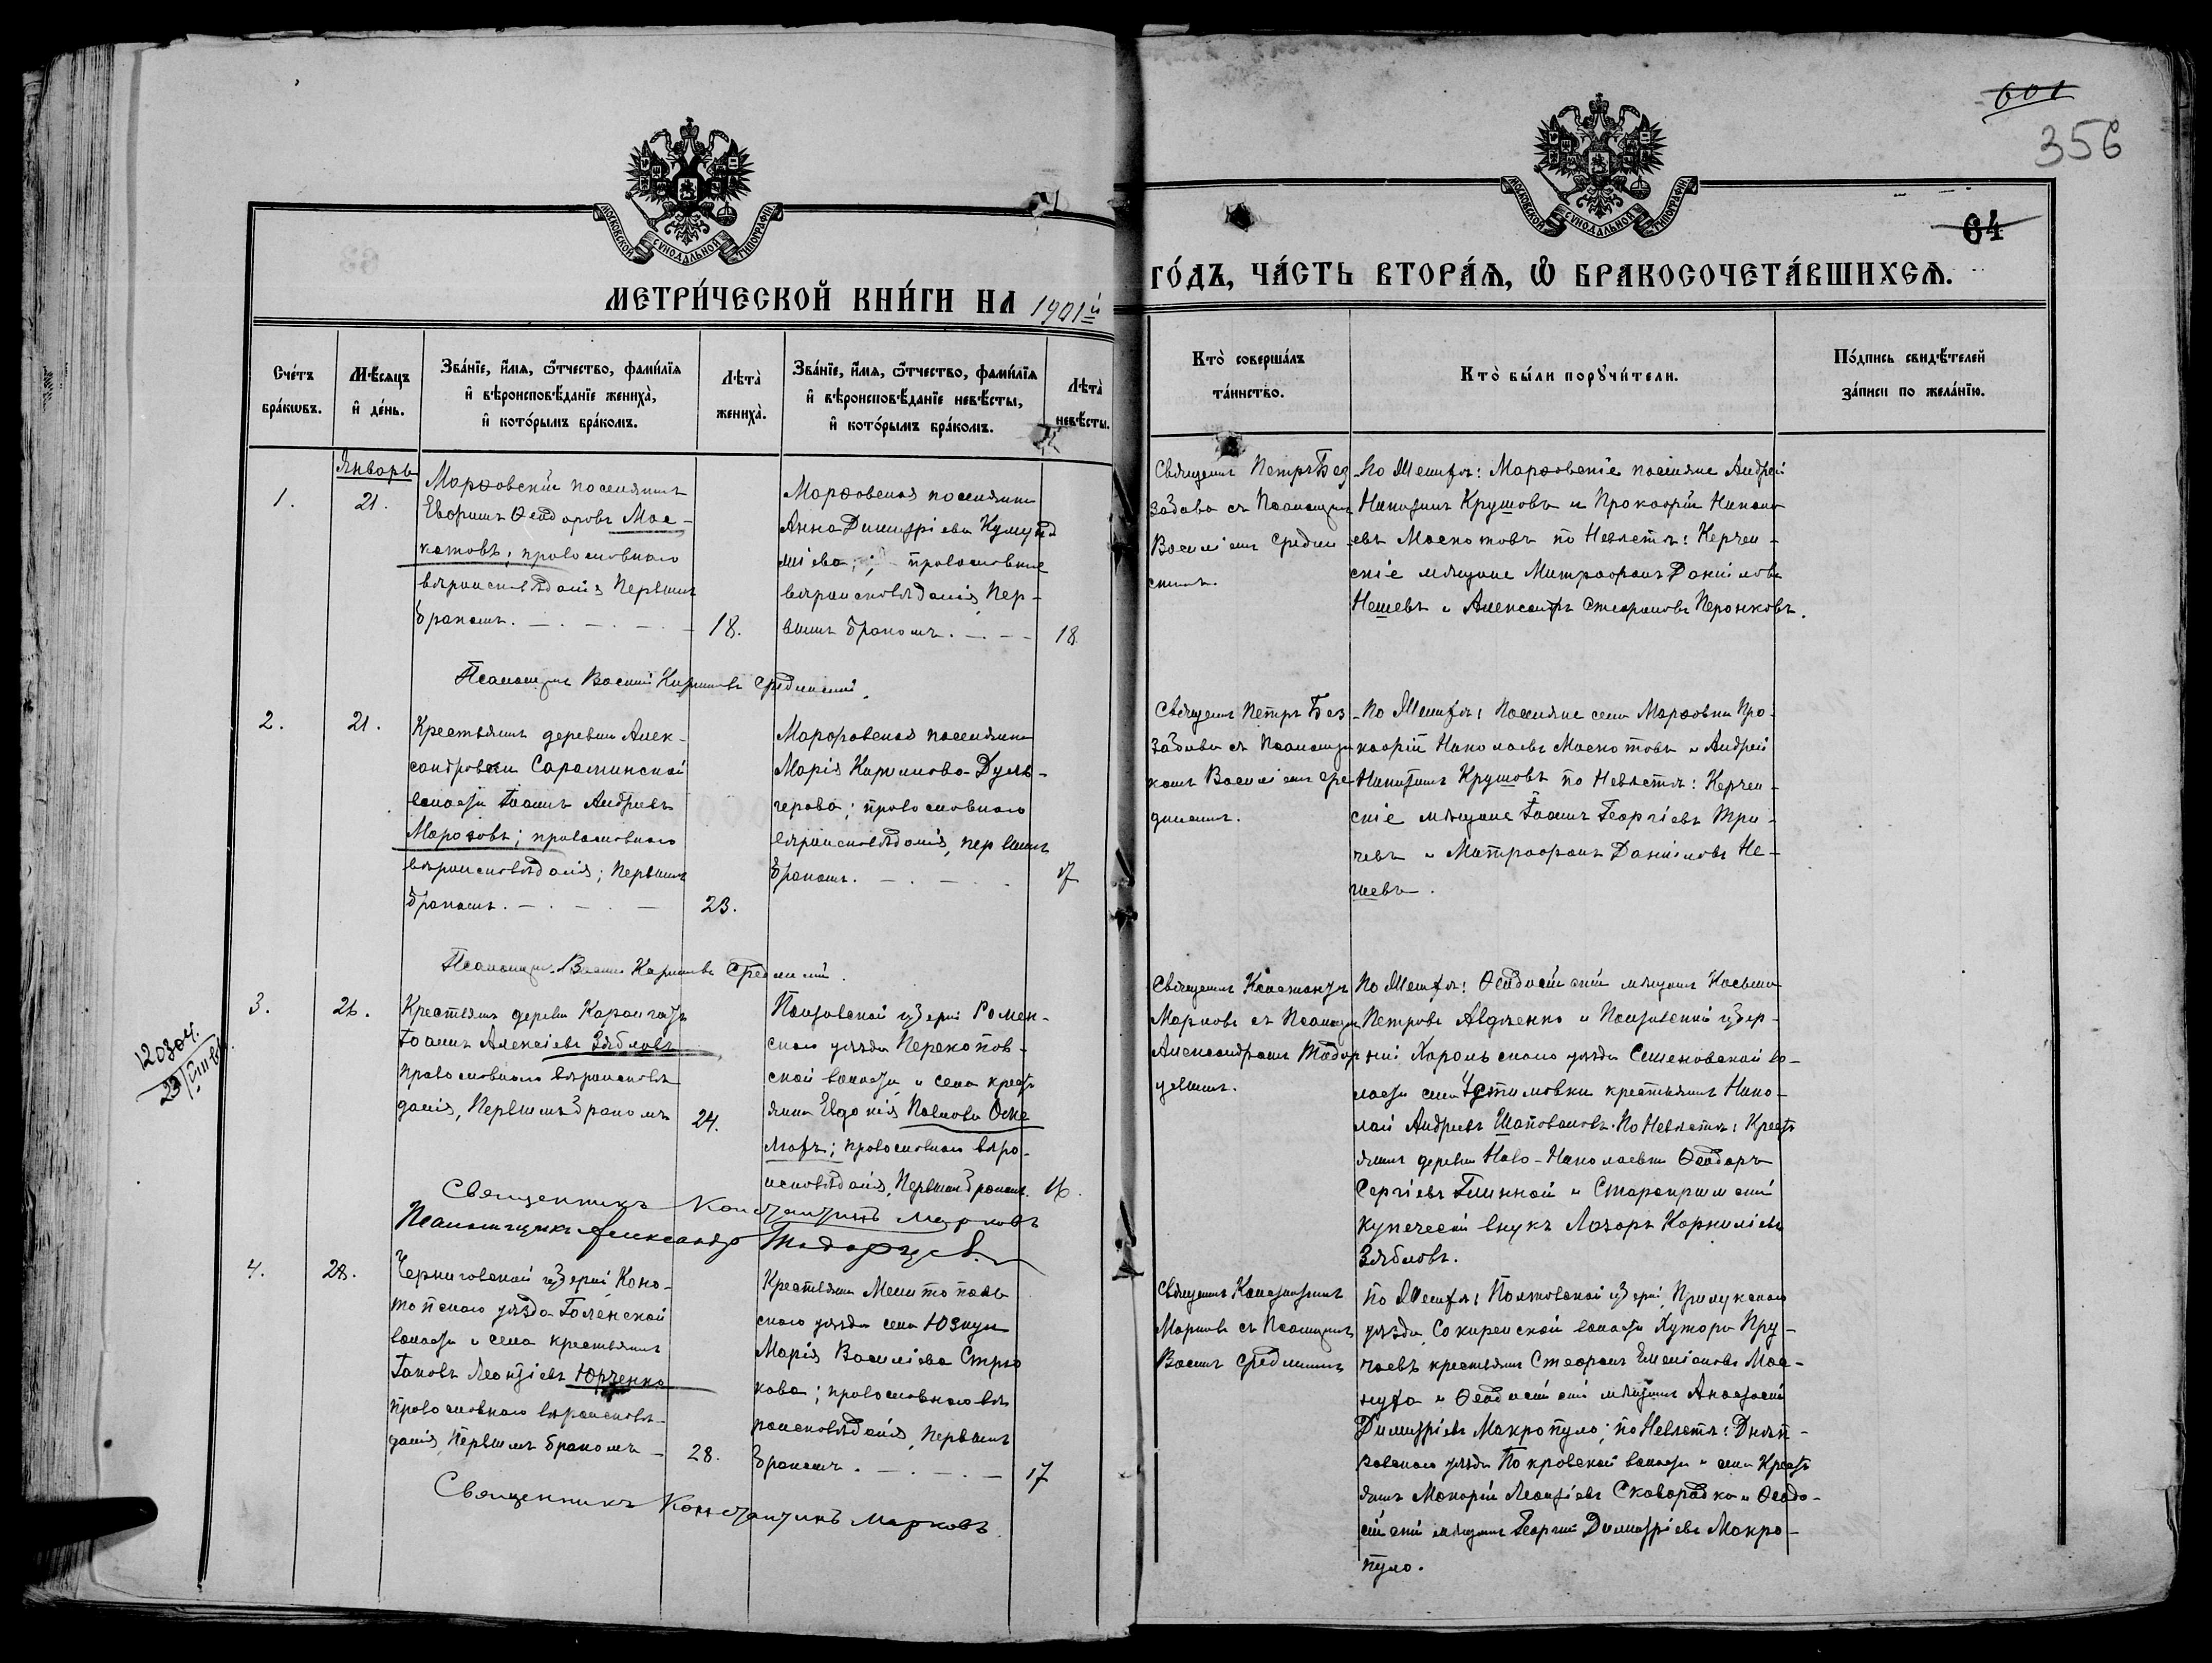 601
356
64
МОСКОВСКОЙ СѴНОДАЛЬНОЙ ТИПОГРАФІИ
МОСКОВСКОЙ СѴНОДАЛЬНОЙ ТИПОГРАФІИ
МЕТРИ́ЧЕСКОЙ КНИ́ГИ НА 1901й
ГО́ДЪ, ЧА́СТЬ ВТОРА́Ѧ, Ѽ БРАКОСОЧЕТА́ВШИХСѦ.
Сче́тъ
бра́кωвъ.
Мѣ́сяцъ
и҆ де́нь.
Зва́нїе, и҆́мя, ѻ҆́тчество, фами́лїя
и҆ вѣроисповѣ́данїе жениха̀,
и҆ кото́рымъ бра́комъ.
Лѣта̀
жениха̀.
Зва́нїе, и҆́мя, ѻ҆́тчество, фами́лїя
и҆ вѣроисповѣ́данїе невѣ́сты,
и҆ кото́рымъ бра́комъ.
Лѣта̀
невѣ́сты.
Кто̀ соверша́лъ
та́инство.
Кто̀ бы́ли порꙋчи́тели.
По́дпись свидѣ́телей
за́писи по жела́нїю.
Январь
1.
21.
Марфовскій поселянинъ
Ѳеодоровъ Мос-
катовъ; православнаго
вѣроисповѣданія Первымъ
бракомъ.
18.
Марфовская поселянка
Анна Димитріева
православнаго
вѣроисповѣданія, Пер-
вымъ бракомъ.
18
Священникъ Петръ Без
забава съ Псаломщик
Василіемъ Средин
скимъ.
По Женихѣ: Марфовскіе поселяне Андрей
Никитинъ Крушовъ и Прокофій Никола
евъ Москотовъ по Невѣстѣ: Керчен-
скіе мѣщане Митрофанъ Даниловъ
Нешевъ и Александръ Стефановъ Перонковъ.
Псаломщикъ Василій Срединскій.
2.
21.
Крестьянинъ деревни Алек-
сандровки Сараминской
волости Іоаннъ Андреевъ
Морозовъ; православнаго
вѣроисповѣданія; Первымъ
бракомъ.
23.
Марфовская поселянка
Марія Дуль-
герова; православнаго
вѣроисповѣданія, первымъ
бракомъ.
17
Священникъ Петръ Без
забава съ Псаломщи
комъ Василіемъ Сре
динскимъ.
По Женихѣ: Поселяне села Марфовки Про-
кофій Николаевъ Москотовъ и Андрей
Никитинъ Крушовъ по Невѣстѣ: Керчен-
скіе мѣщане Іоаннъ Георгіевъ Три-
чевъ и Митрофанъ Даниловъ Не-
шевъ.
Псаломщикъ Василій Срединскій.
3.
Крестьянинъ деревни
Іоаннъ Алексіевъ Зябловъ
православнаго вѣроисповѣ
данія, Первымъ бракомъ
24.
Полтавской губерніи Ромен-
скаго уѣзда Перекопов-
ской волости и села крест
янка Евдокія Павлова
православнаго вѣро-
исповѣданія, Первымъ бракомъ.
16.
Священникъ Константинъ
Марковъ съ Псаломщи
Александромъ Тодор
цевымъ.
По Женихѣ: Ѳеодосійскій мѣщанинъ Косьма
Петровъ Авдѣенко и Полтавской губер-
ніи Хорольскаго уѣзда Семеновской во-
лости села Устимовки крестьянинъ Нико-
лай Андреевъ Шаповаловъ. По Невѣстѣ: Крест
янинъ деревни Ново-Николаевки Ѳеодоръ
Сергіевъ Глинной и Старокрымскій
купеческій внукъ Лазарь Корниліевъ
Зябловъ.
12030 ч.
Священникъ Константинъ Марковъ
Псаломщикъ Александръ Тодорцевъ
4.
28.
Черниговской губерніи, Коно-
топскаго уѣзда Голенской
волости и села крестьянинъ
Іаковъ Леонтіевъ Юрченко
православнаго вѣроисповѣ-
данія, Первымъ бракомъ
28.
Крестьянка Мелитополь
скаго уѣзда села Юзкуи
Марія Василіева Стрю
кова; православнаго вѣ
роисповѣданія, Первымъ
бракомъ.
17
Священникъ Константинъ
Марковъ съ Псаломщикомъ
Василіемъ Срединскимъ
По Женихѣ: Полтавской губерніи, Прилукскаго
уѣзда, Сокиренской волости Хутора Пру-
чаевъ крестьянинъ Стефанъ Емеліановъ Мос-
и Ѳеодосійскій мѣщанинъ Анастасій
Димитріевъ Макропуло; по Невѣстѣ: Днѣп-
ровскаго уѣзда Покровской волости и села Крест
янинъ Макарій Леонтіевъ Сковородка и Ѳеодо-
сійскій мѣщанинъ Георгій Димитріевъ Макро-
пуло.
Священникъ Константинъ Марковъ.